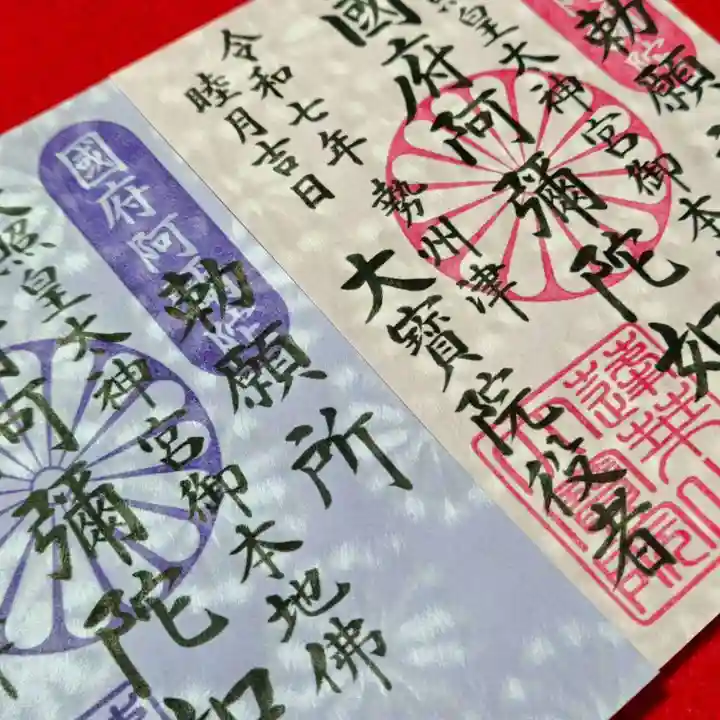 勅願
照皇大神宮御本
國府阿彌陀如
勢州津
大寳院役者
令和七年
睦月吉日
國府阿彌陀
勅願所
天照皇大神宮御本地佛
阿彌陀如